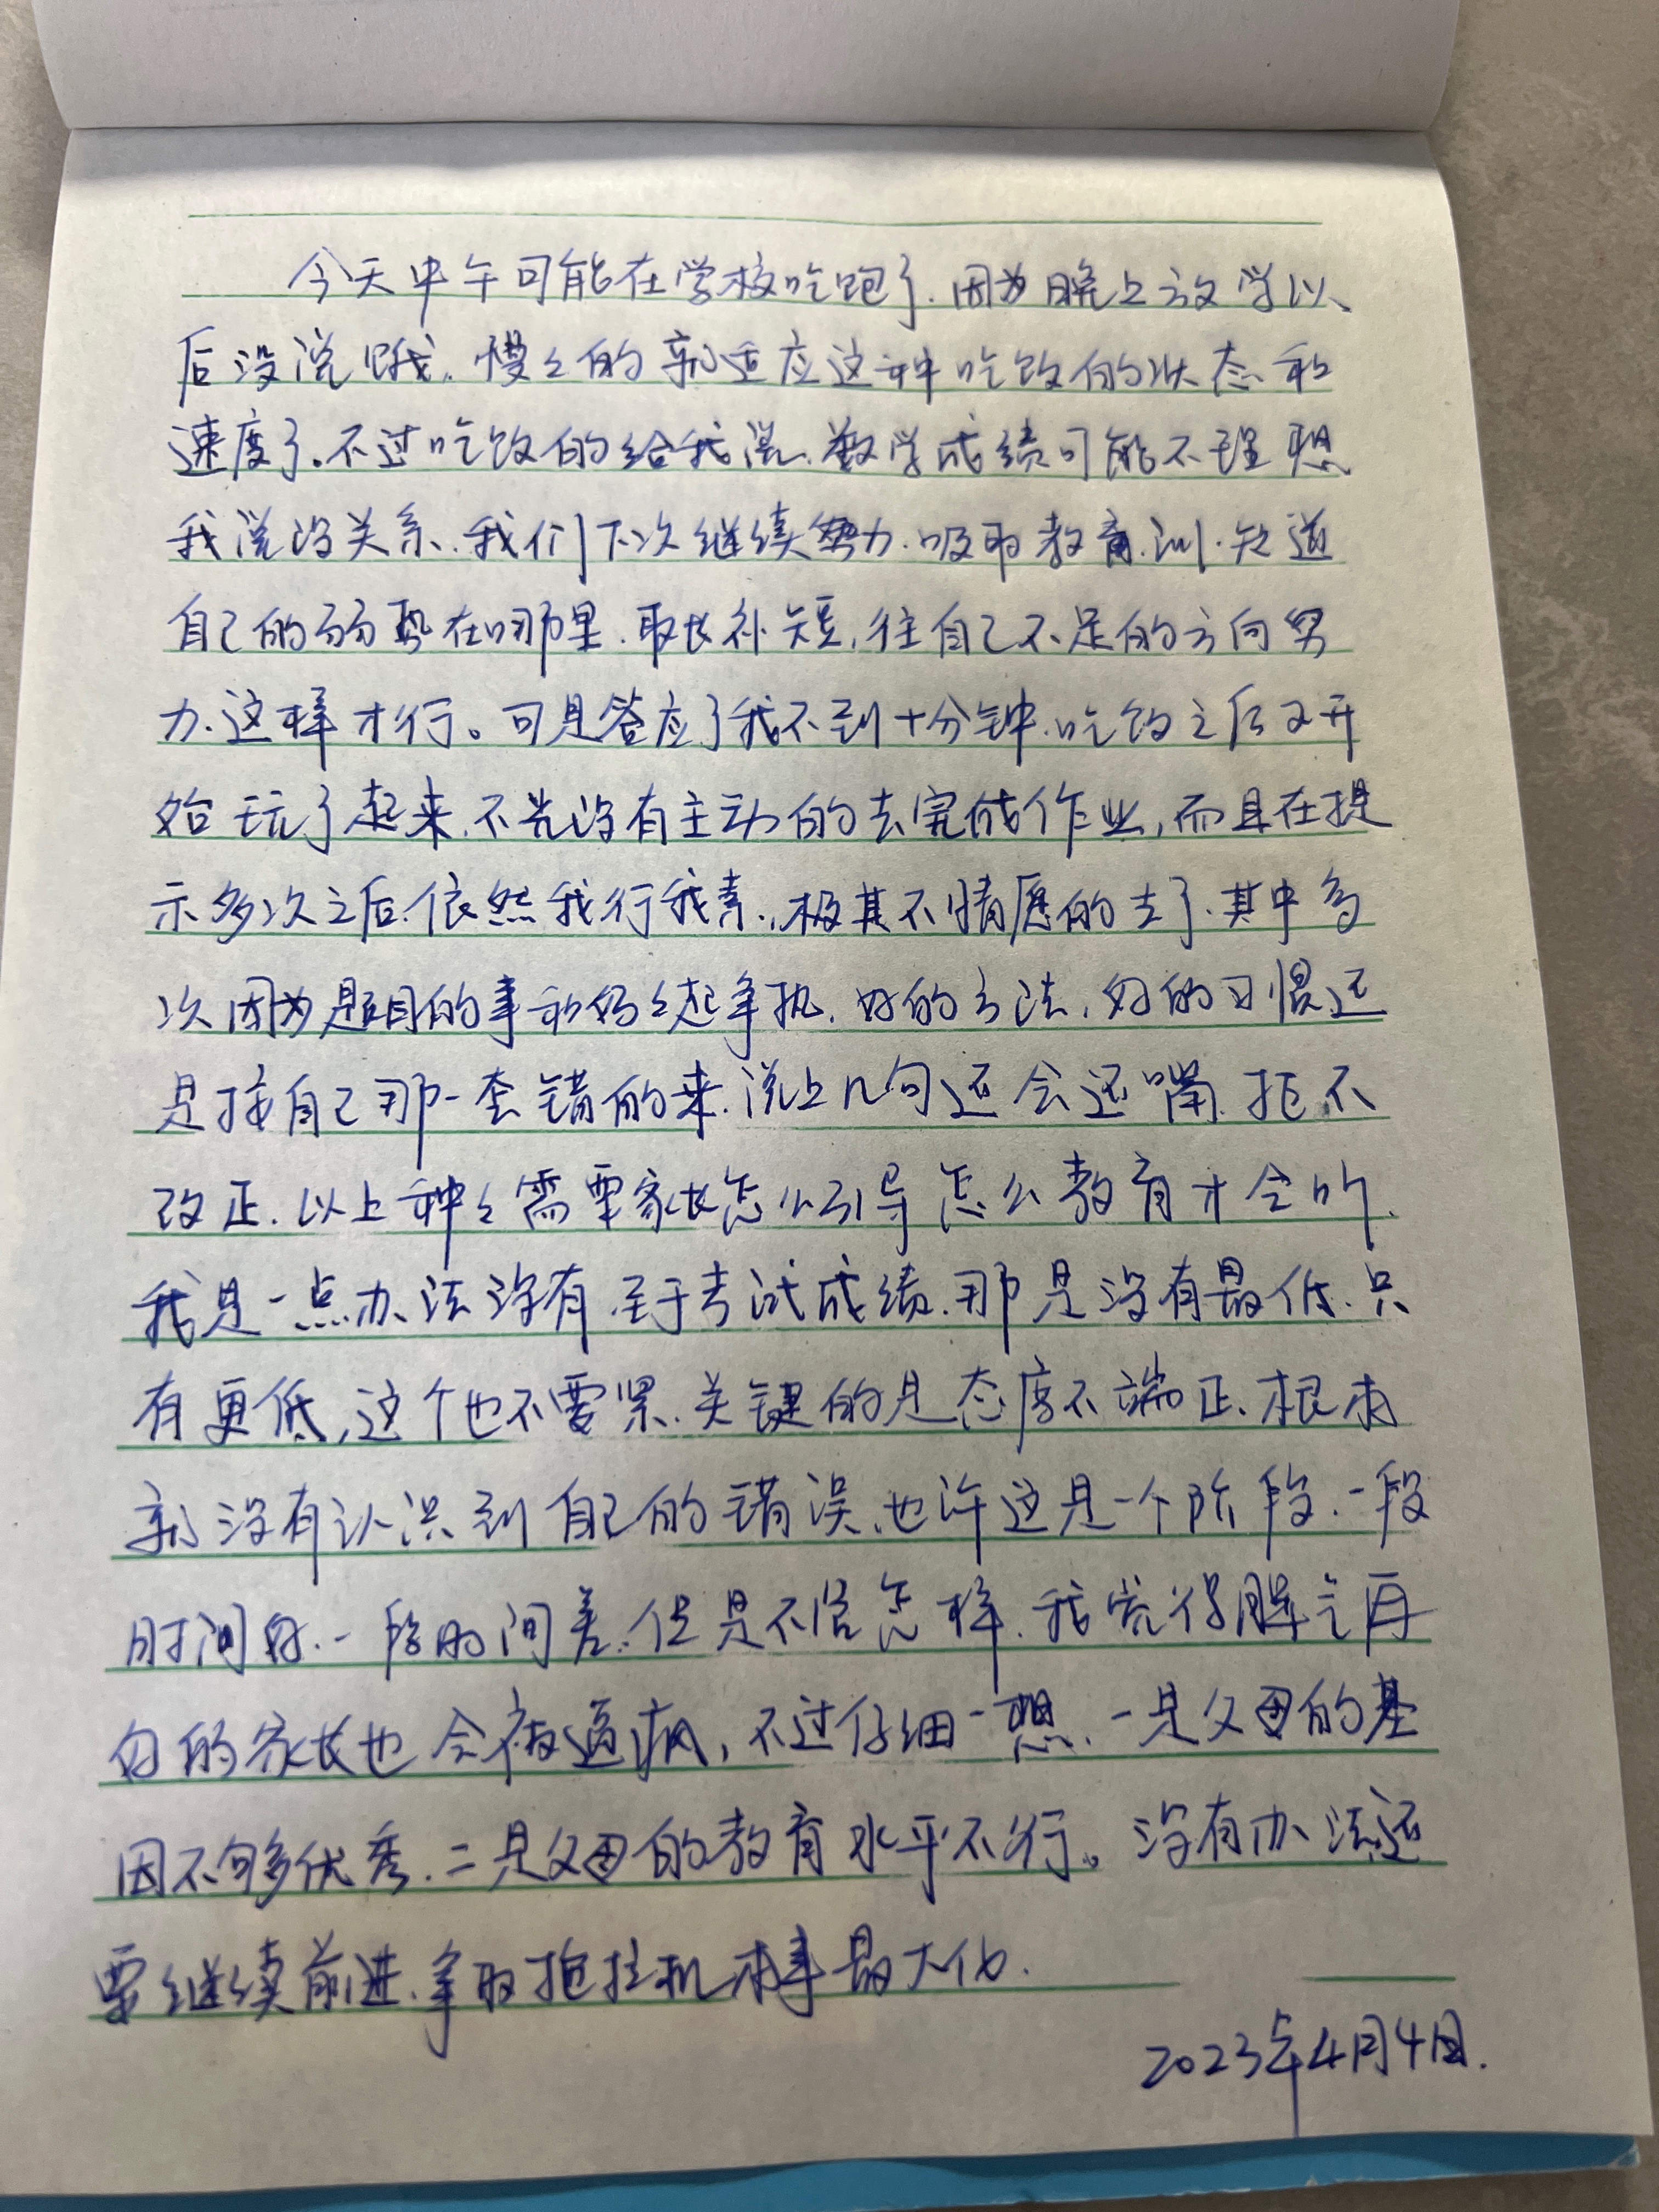 今天中午可能在学校吃饱了.因为晚上放学以、
后没说饿.慢々的就适应这种吃饭的状态和
速度了。不过吃饭的给我说.数学成绩可能不理想
我说没关系.我们下次继续努力.吸取教育.训.知道
自己的弱势在哪里.取长补短,往自己不足的方向努
力.这样才行。可是答应了我不到十分钟.吃饭之后又开
始玩了起来.不光没有主动的去完成作业,而且在提
示多次之后.依然我行我素.,极其不情愿的去了.其中多
次因为题目的事和妈々起争执.好的方法,好的习惯还
是按自己那一套错的来.说上几句还会还嘴.拒不
改正.以上种々需要家长怎么引导怎么教育才会听.
我是一点办法没有.至于考试成绩.那是没有最低.只
有更低,这个也不要紧.关键的是态度不端正.根本
就没有认识到自己的错误.也许这是一个阶段.一段
时间好.一段时间差.但是不管怎样.我觉得脾气再
好的家长也会被逼疯,不过仔细一想.一是父母的基
因不够优秀.二是父母的教育水平不行。没有办法还
要继续前进.争取拖拉机本事最大化.
2023年4月4日.